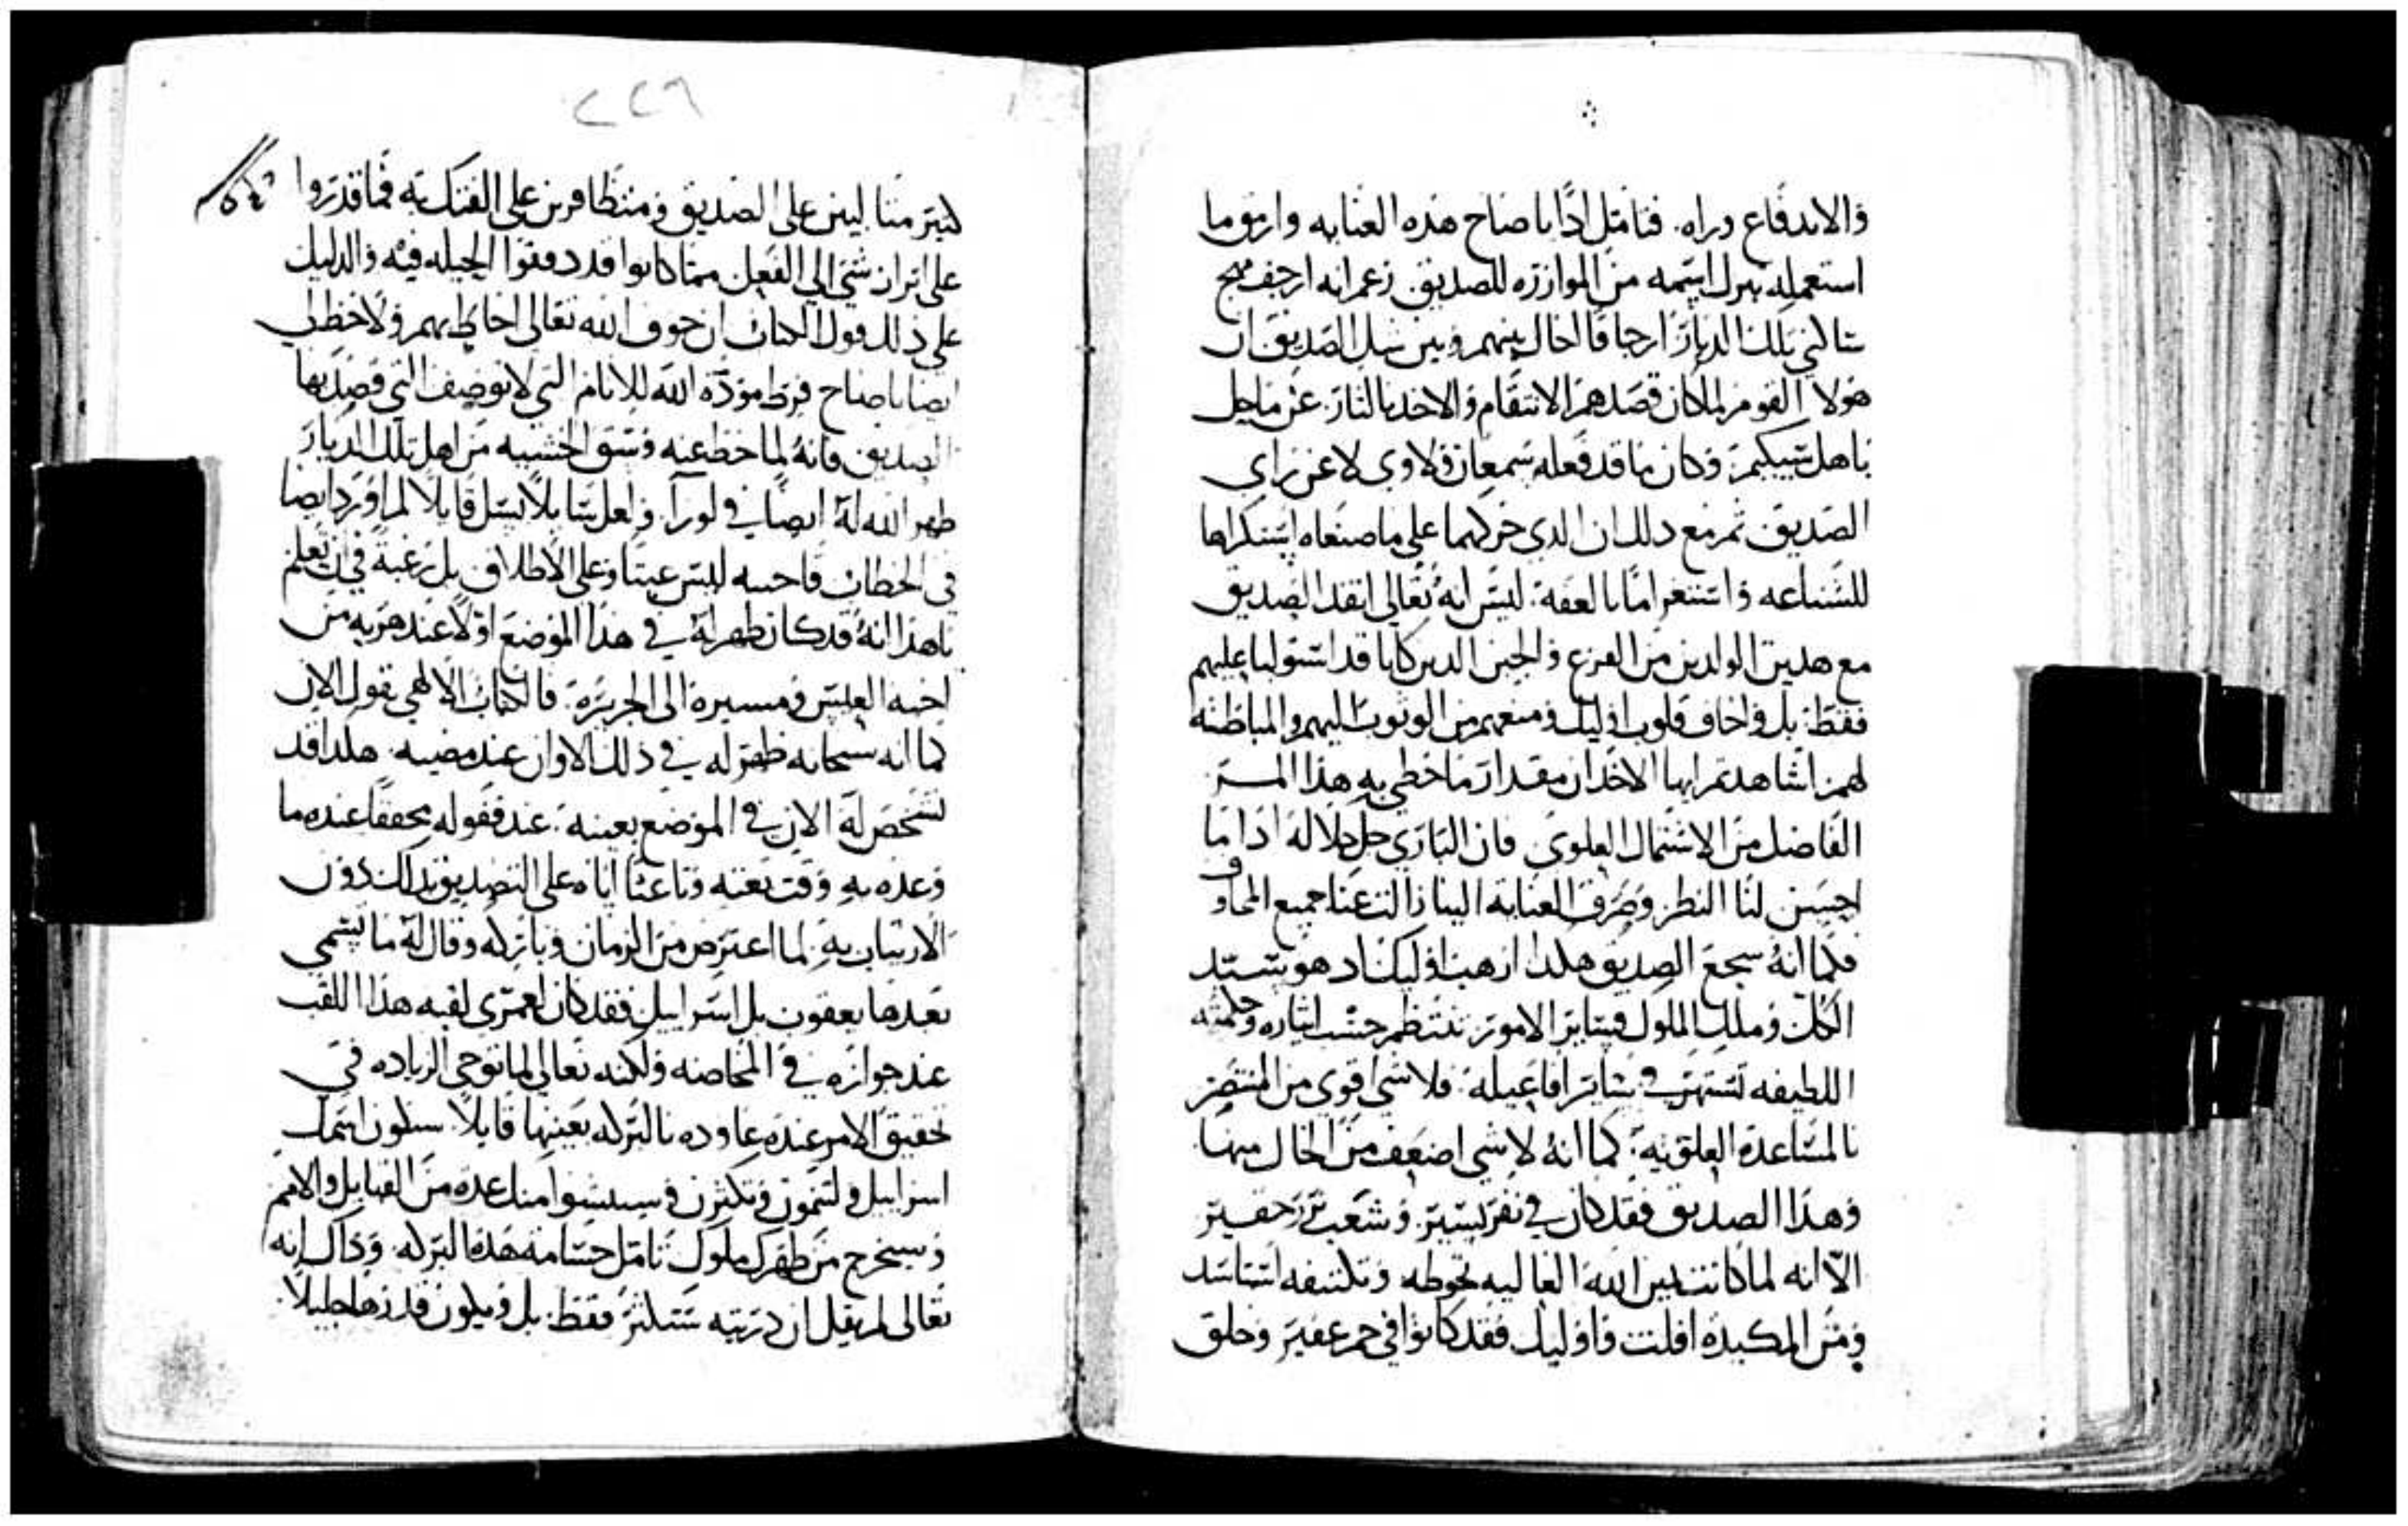 والاندفاع وراه. فتامل اذًا يا صاح هذه العنايه وارمق ما
استعمله ببرك اسمه من الموازره للصديق. زعم انه ارجف مهج
ساكني تلك الديار ارجافًا اخال بينهم وبين سل الصديق ان
هولا القوم لما كان قصدهم الانتقام والاخذ بالثار. عن ما حل
باهل شيكيم. وكان ما قد فعله سمعان ولاوى لا عن راي
الصديق ثم مع ذلك ان الذي حركهما على ما صنعاه استنكارها
للشناعه واستغرامًا بالعفه. ليس انه تعالى انقذ الصديق
مع هذين الولدين من الفزع والجبن الذين كانا قد استوليا عليهم
فقط. بل واخاف قلوب اوليك ومنعهم من الوثوب اليهم والمباطنه
لهم. اشاهدتم ايها الاخدان مقدار ما خطي به هذا السر
الفاضل من الاشتمال العلوى فان الباري جل جلاله اذا ما
احسن لنا النظر وصرف العنايه الينا زالت عنا جميع المخاوف
فكما انه شجع الصديق هكذا ارهب اوليك اذ هو سيد
الكل وملك الملوك فساير الامور تنتظم حسب ايثاره وحكمته
اللطيفه تستهر في ساير افاعيله. فلا شي اقوى من المنتصر
بالمساعده العلويه. كما انه لا شي اضعف من الخال منها
وهذا الصديق فقد كان في نفر يسير. وشعب نزر حقير
الا انه لما كانت يمين الله العاليه تحوطه وتكنفه استاسد
ومن المكيده افلت واوليك فقد كانوا في جم غفير وخلق
٢٢٦
كثير متالبين على الصديق ومتظافرين على الفتك به فما قدروا
على ابراز شي الى الفعل مما كانوا قد دفنوا الحيله فيه والدليل
على ذلك قول الكتاب ان خوف الله تعالى احاط بهم ولاحظ لي
ايضا يا صاح فرط مودة الله للانام التي لا توصف التي قصد بها
الصديق فانه لما حط عنه وسق الخشيه من اهل تلك الديار
ظهر الله له ايضًا في لورا. ولعل سايلًا يسل قايلًا لم اورد ايضا
في الخطاب فاجيبه ليس عبثًا وعلى الاطلاق بل رغبة في ان تعلم
يا هذا انه قد كان ظهر له في هذا الموضع اولًا عند هربه من
اخيه العيس ومسيره الى الجزيره. فالكتاب الالهي يقول الان
كما انه سبحانه ظهر له في ذلك الاوان عند مضيه. هكذا قد
تشخص له الان في الموضع بعينه. عند قفوله محققًا عنده ما
وعده به وقت بعثه وباعثًا اياه على التصديق بذاك دون
الارتياب به. لما اعترض من الزمان وباركه وقال له ما يسمى
بعدها يعقوب بل اسراييل فقد كان لعمري لقبه هذا اللقب
عند جوازه في المخاضه ولكنه تعالى لما توخى الزياده في
تحقيق الامر عنده عاوده بالبركه بعينها قايلًا. سيكون اسمك
اسراييل ولتنمون وتكثرن وسينشوا منك عدة من القبايل والامم
وسيخرج من ظهرك ملوك تامل جسامة هذه البركه. وذاك انه
تعالى لم يقل ان ذريته ستكثر فقط. بل ويكون قدرها جليلًا.